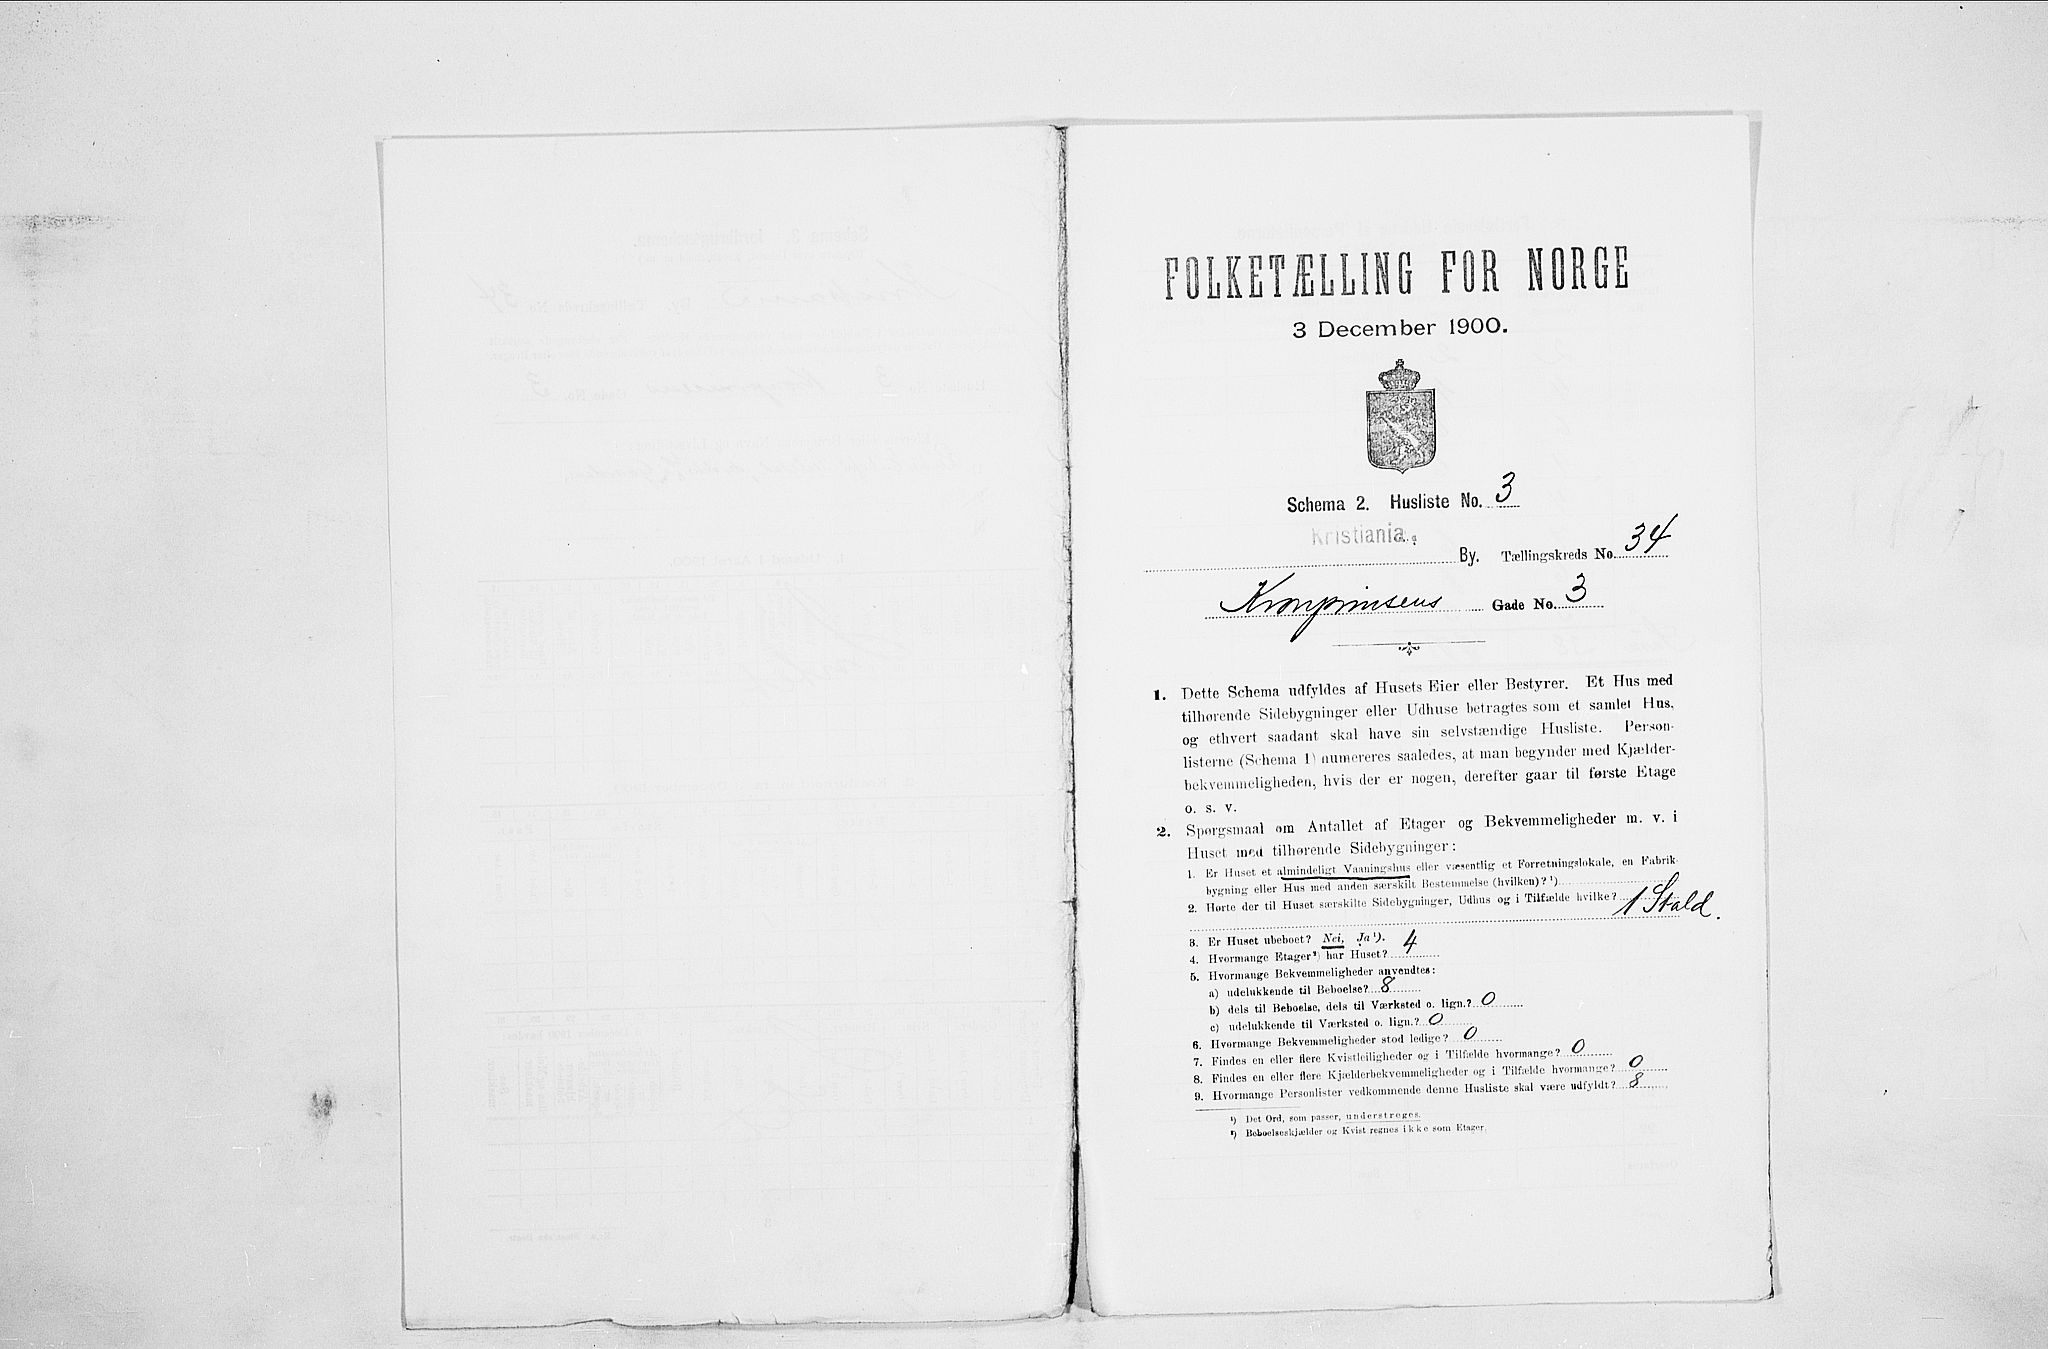 FOLKETÆLLING FOR NORGE
3 December 1900.
Schema 2. Husliste No. 3
Kristiania.
By. Tællingskreds No. 34
Kronprinsens Gade No. 3
1. Dette Schema udfyldes af Husets Eier eller Bestyrer. Et Hus med
tilhørende Sidebygninger eller Udhuse betragtes som et samlet Hus,
og ethvert saadant skal have sin selvstændige Husliste. Person-
listerne (Schema 1) numereres saaledes, at man begynder med Kjælder-
bekvemmeligheden, hvis der er nogen, derefter gaar til første Etage
o. s. v.
2. Spørgsmaal om Antallet af Etager og Bekvemmeligheder m. v. i
Huset med tilhørende Sidebygninger:
1. Er Huset et almindeligt Vaaningshus eller væsentlig et Forretningslokale, en Fabrik-
bygning eller Hus med anden særskilt Bestemmelse (hvilken)? ¹)
2. Hørte der til Huset særskilte Sidebygninger, Udhus og i Tilfælde hvilke?
1 Stald.
3. Er Huset ubeboet? Nei, Ja ¹).
4. Hvormange Etager ²) har Huset? 4
5. Hvormange Bekvemmeligheder anvendtes:
a) udelukkende til Beboelse? 8
b) dels til Beboelse, dels til Værksted o. lign.? 0
c) udelukkende til Værksted o. lign.? 0
6. Hvormange Bekvemmeligheder stod ledige? 0
7. Findes en eller flere Kvistleiligheder og i Tilfælde hvormange? 0
8. Findes en eller flere Kjælderbekvemmeligheder og i Tilfælde hvormange? 0
9. Hvormange Personlister vedkommende denne Husliste skal være udfyldt? 8
¹) Det Ord, som passer, understreges.
²) Beboelseskjælder og Kvist regnes ikke som Etager.